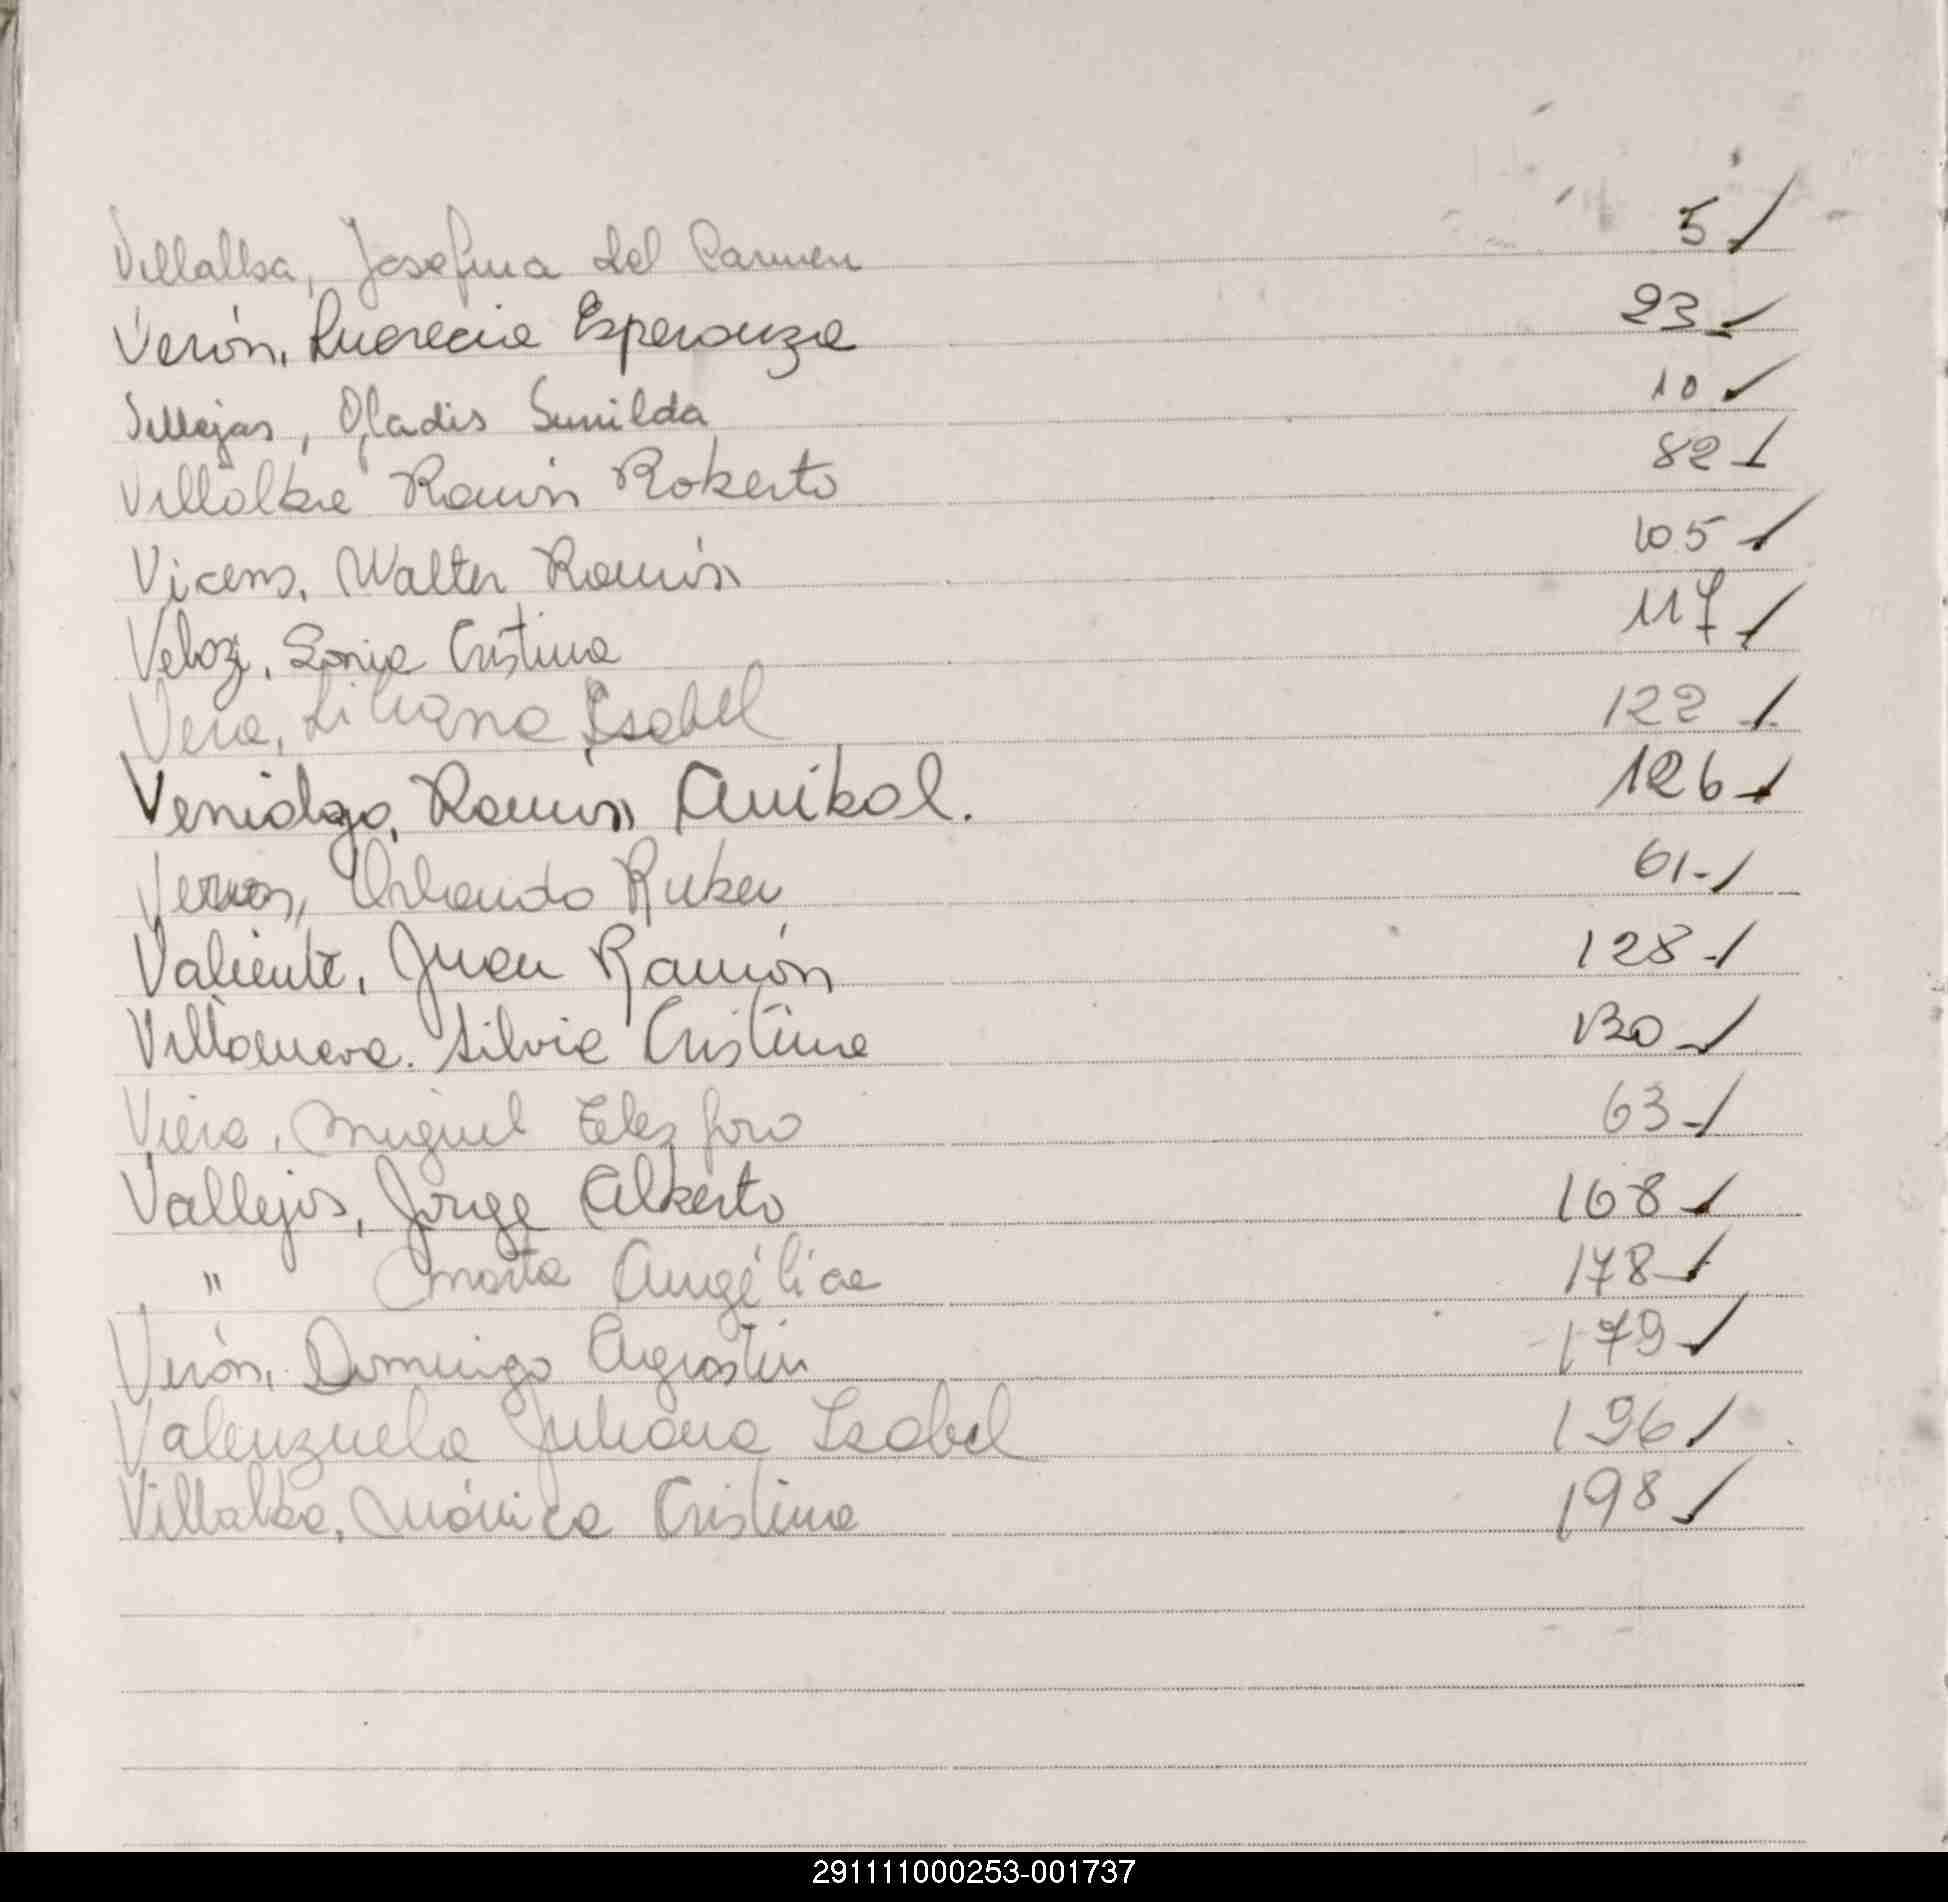 Villalba, Josefina del Carmen 5
Verón, Lucrecia Esperanza 23
Villejas, Gladis Sunilda 10
Villalba Ramón Roberto 82
Vicens, Walter Ramón 105
Veloz, Sonia Cristina 117
Vera, Liliana Isabel 122
Veniolgo, Ramón Anibal. 126
Orlando Ruben 61
Valiente, Juan Ramón 128
Villanueva. Silvia Cristina 130
Viera, Miguel Telesforo 63
Vallejos, Jorge Alberto 168
" Marta Angélica 178
Verón, Domingo Agrostin 179
Valenzuela Juliana Isabel 196
Villalba, Mónica Cristina 198
291111000253-001737